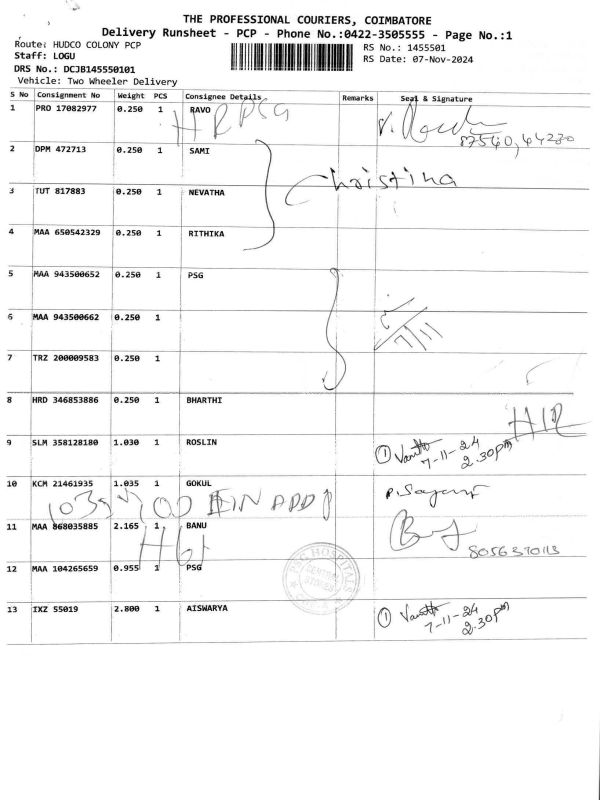 THE PROFESSIONAL COURIERS, COIMBATORE
Delivery Runsheet - PCP - Phone No.:0422-3505555 - Page No.:1
Route: HUDCO COLONY PCP
RS No.: 1455501
Staff: LOGU
RS Date: 07-Nov-2024
DRS No.: DCJB145550101
Vehicle: Two Wheeler Delivery
S No Consignment No Weight PCS Consignee Details Remarks Seal & Signature
1 PRO 17082977 0.250 1 RAVO
87540,44230
2 DPM 472713 0.250 1 SAMI
Christina
3 TUT 817883 0.250 1 NEVATHA
4 MAA 650542329 0.250 1 RITHIKA
5 MAA 943500652 0.250 1 PSG
6 MAA 943500662 0.250 1
7/11
7 TRZ 200009583 0.250 1
8 HRD 346853886 0.250 1 BHARTHI
9 SLM 358128180 1.030 1 ROSLIN
1 7-11-24
2.30pm
10 KCM 21461935 1.035 1 GOKUL
11 MAA 868035885 2.165 1 BANU
8056370113
12 MAA 104265659 0.955 1 PSG
PSG HOSPITALS
CENTRAL
STORES
13 IXZ 55019 2.800 1 AISWARYA
1 7-11-24
2.30pm